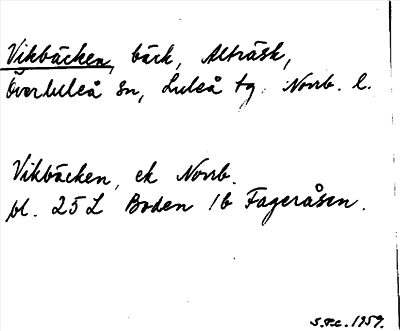 Vikbäcken, bäck, Alträsk,
Överluleå sn, Luleå tg. Norrb. l.
Vikbäcken, ek Norrb.
bl. 25 L Boden 1b Fageråsen.
S.F.C. 1959.